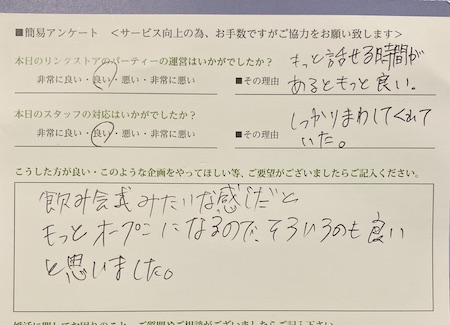 ■簡易アンケート ＜サービス向上の為、お手数ですがご協力をお願い致します＞
本日のリンクストアのパーティーの運営はいかがでしたか？
非常に良い・良い・悪い・非常に悪い
■その理由
もっと話せる時間が
あるともっと良い。
本日のスタッフの対応はいかがでしたか？
非常に良い・良い・悪い・非常に悪い
■その理由
しっかりまわしてくれて
いた。
こうした方が良い・このような企画をやってほしい等、ご要望がございましたらご記入ください。
飲み会式みたいな感じだと
もっとオープンになるので、そういうのも良い
と思いました。
婚活に関してお困りのこと、ご質問やご相談がございましたらご記入下さい。